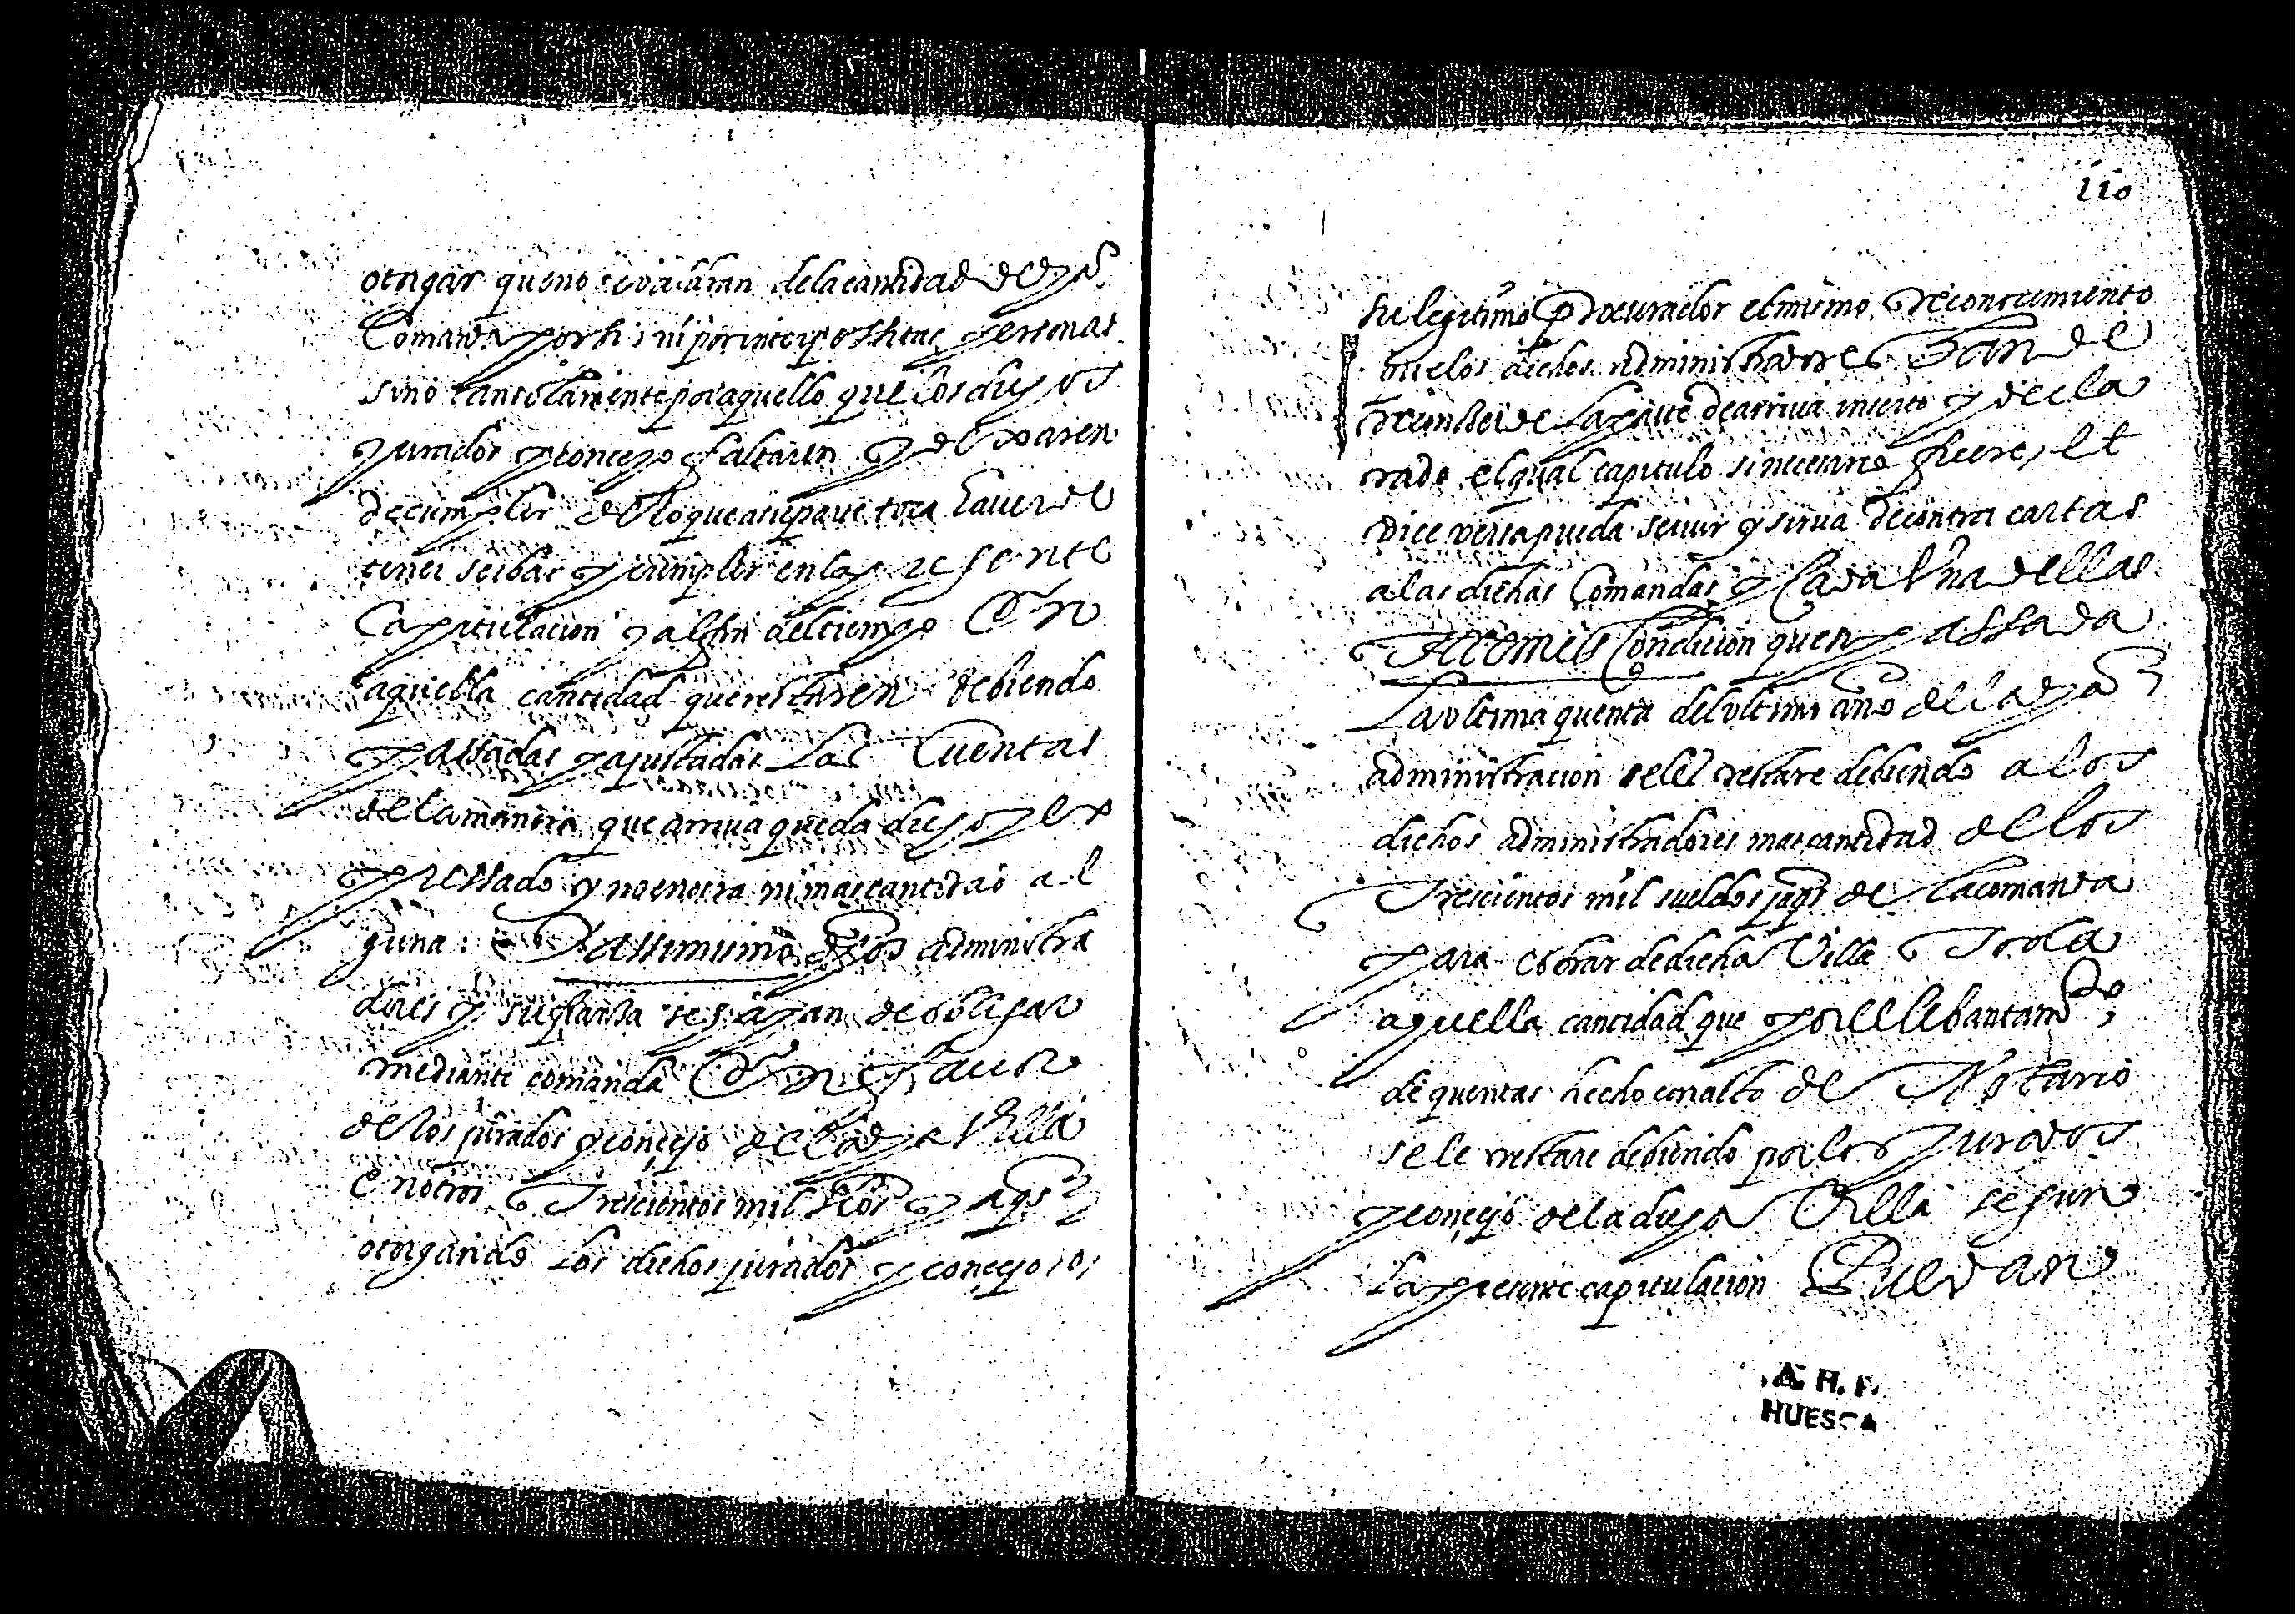 otorgar que no se valdran de la cantidad de dha
Comanda por si ni por interpositas personas
sino tansolamente por aquello que los dichos
Jurados y concejo faltaren y dexaren
de cumplir de lo que a su parte toca hacer de
tener serbar y cumplir en la presente
Capitulacion y al fin del tiempo En
aquella cantidad que restaren debiendo
passadas y ajustadas Las Cuentas
de la manera que arriua queda dicho y ex
pressado y no en otra ni mas cantidad al
guna: Y assimismo dhos administra
dores y su fianza se hayan de obligar
mediante comanda En fauor
de los jurados y concejo de la dha Villa
en otros Trescientos mil sños jaqs
otorgando Los dichos jurados y concejo o
110
su legitimo Procurador el mismo Reconocimiento
que los dichos administradores han de
Recinbir de La parte de arriua inserto y decla
rado el qual capitulo si necesario fuere, et
vice versa pueda seruir y sirua de contra cartas
a las dichas Comandas y Cada Vna dellas
Item es Condicion que en passada
La vltima quenta del vltimo año de la dha
administracion se les restare debiendo a los
dichos administradores mas cantidad de los
Trescientos mil sueldos jaqs de La comanda
para cobrar de dicha Villa Toda
aquella cantidad que por el lebantamto
de quentas hecho con alto de Notario
se le restare debiendo por los Jurados
y concejo de la dicha Villa segun
La presente capitulacion Puedan
A. H. P.
HUESCA